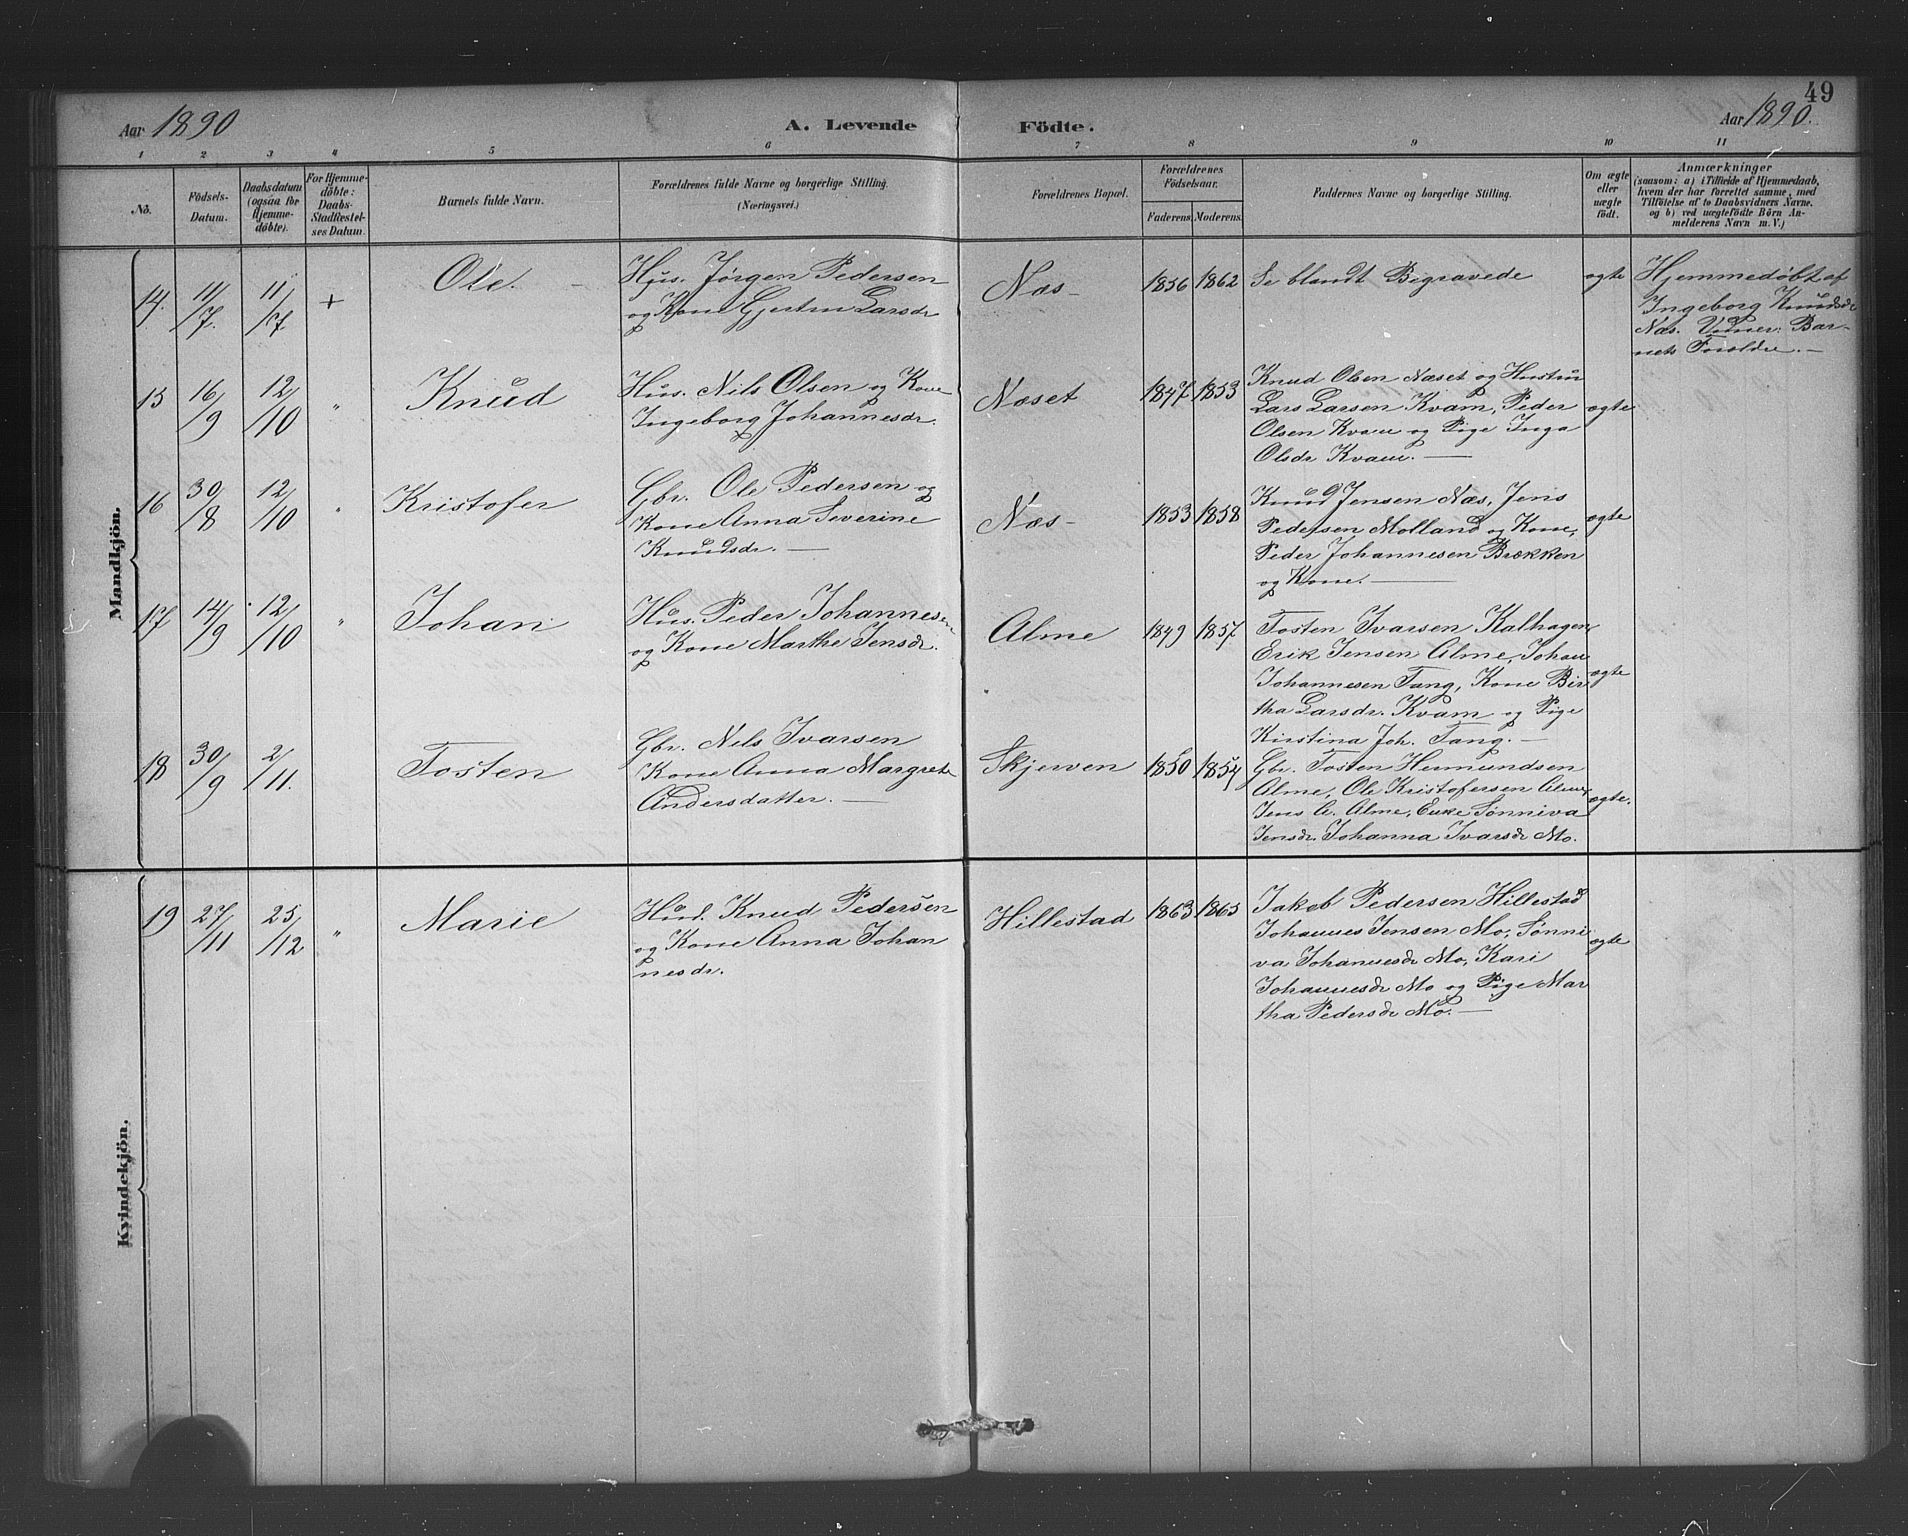 49
Aar 1890
A. Levende Födte.
Aar 1890.
1 2 3 4 5 6 7 8 9 10 11
No.
Födsels-
Datum.
Daabsdatum
(ogsaa for
Hjemme-
döbte).
For Hjemme-
döbte:
Daabs-
Stadfæstel-
ses Datum.
Barnets fulde Navn.
Forældrenes fulde Navne og borgerlige Stilling.
(Næringsvei.)
Forældrenes Bopæl.
Forældrenes
Födselsaar.
Faderens. Moderens.
Faddernes Navne og borgerlige Stilling.
Om ægte
eller
uægte
födt.
Anmærkninger
(saasom: a) i Tilfælde af Hjemmedaab,
hvem der har forrettet samme, med
Tilföielse af to Daabsvidners Navne.
og b) ved uægtefödte Börn An-
melderens Navn m. V.)
Mandkjön.
14. 11/7 11/7 +
Ole.
Hus. Jørgen Pedersen
og Kone Gjertru Larsdr
Næs -
1856 1862
Se blandt Begravede
ægte
Hjemmedøbt af
Ingeborg Knudsdr
Næs. Vidner: Bar-
nets Forældre. —
15 16/9 12/10 "
Knud
Hus. Nils Olsen og Kone
Ingeborg Johannesdr.
Næset
1847 1853
Knud Olsen Næset og Hustru
Lars Larsen Kvam, Peder
Olsen Kvam og Pige Inga
Olsdr Kvam. —
ægte
16 30/8 12/10 "
Kristofer
Gbr. Ole Pedersen og
Kone Anna Severine
Knudsdr. —
Næs -
1853 1858
Knud Jensen Næs, Jens
Pedersen Molland og Kone,
Peder Johannesen Brækken
og Kone. —
ægte
17 14/9 12/10 "
Johan
Hus. Peder Johannesen
og Kone Marthe Jensdr.
Alme
1849 1857
Tosten Ivarsen Kalhagen,
Erik Jensen Alme, Johan
Johannesen Tang, Kone Bir
tha Larsdr. Kvam og Pige
Kirstina Joh. Tang. —
ægte
18 30/9 2/11.
Tosten
Gbr. Nils Ivarsen
Kone Anna Margrete
Andersdatter. —
Skjerven
1850 1854
Gbr. Tosten Hermundsen
Alme, Ole Kristofersen Alme,
Jens A. Alme, Enke Sønniva
Jensdr. Johanna Ivarsdr Mo.
ægte.
Kvindekjön.
19 27/11 25/12 "
Marie
Husd. Knud Pedersen
og Kone Anna Johan
nesdr.
Hillestad
1863 1865
Jakob Pedersen Hillestad
Johannes Jensen Mo, Sønni
va Johannesdr Mo, Kari
Johannesdr Mo og Pige Mar
tha Pedersdr Mo. —
ægte